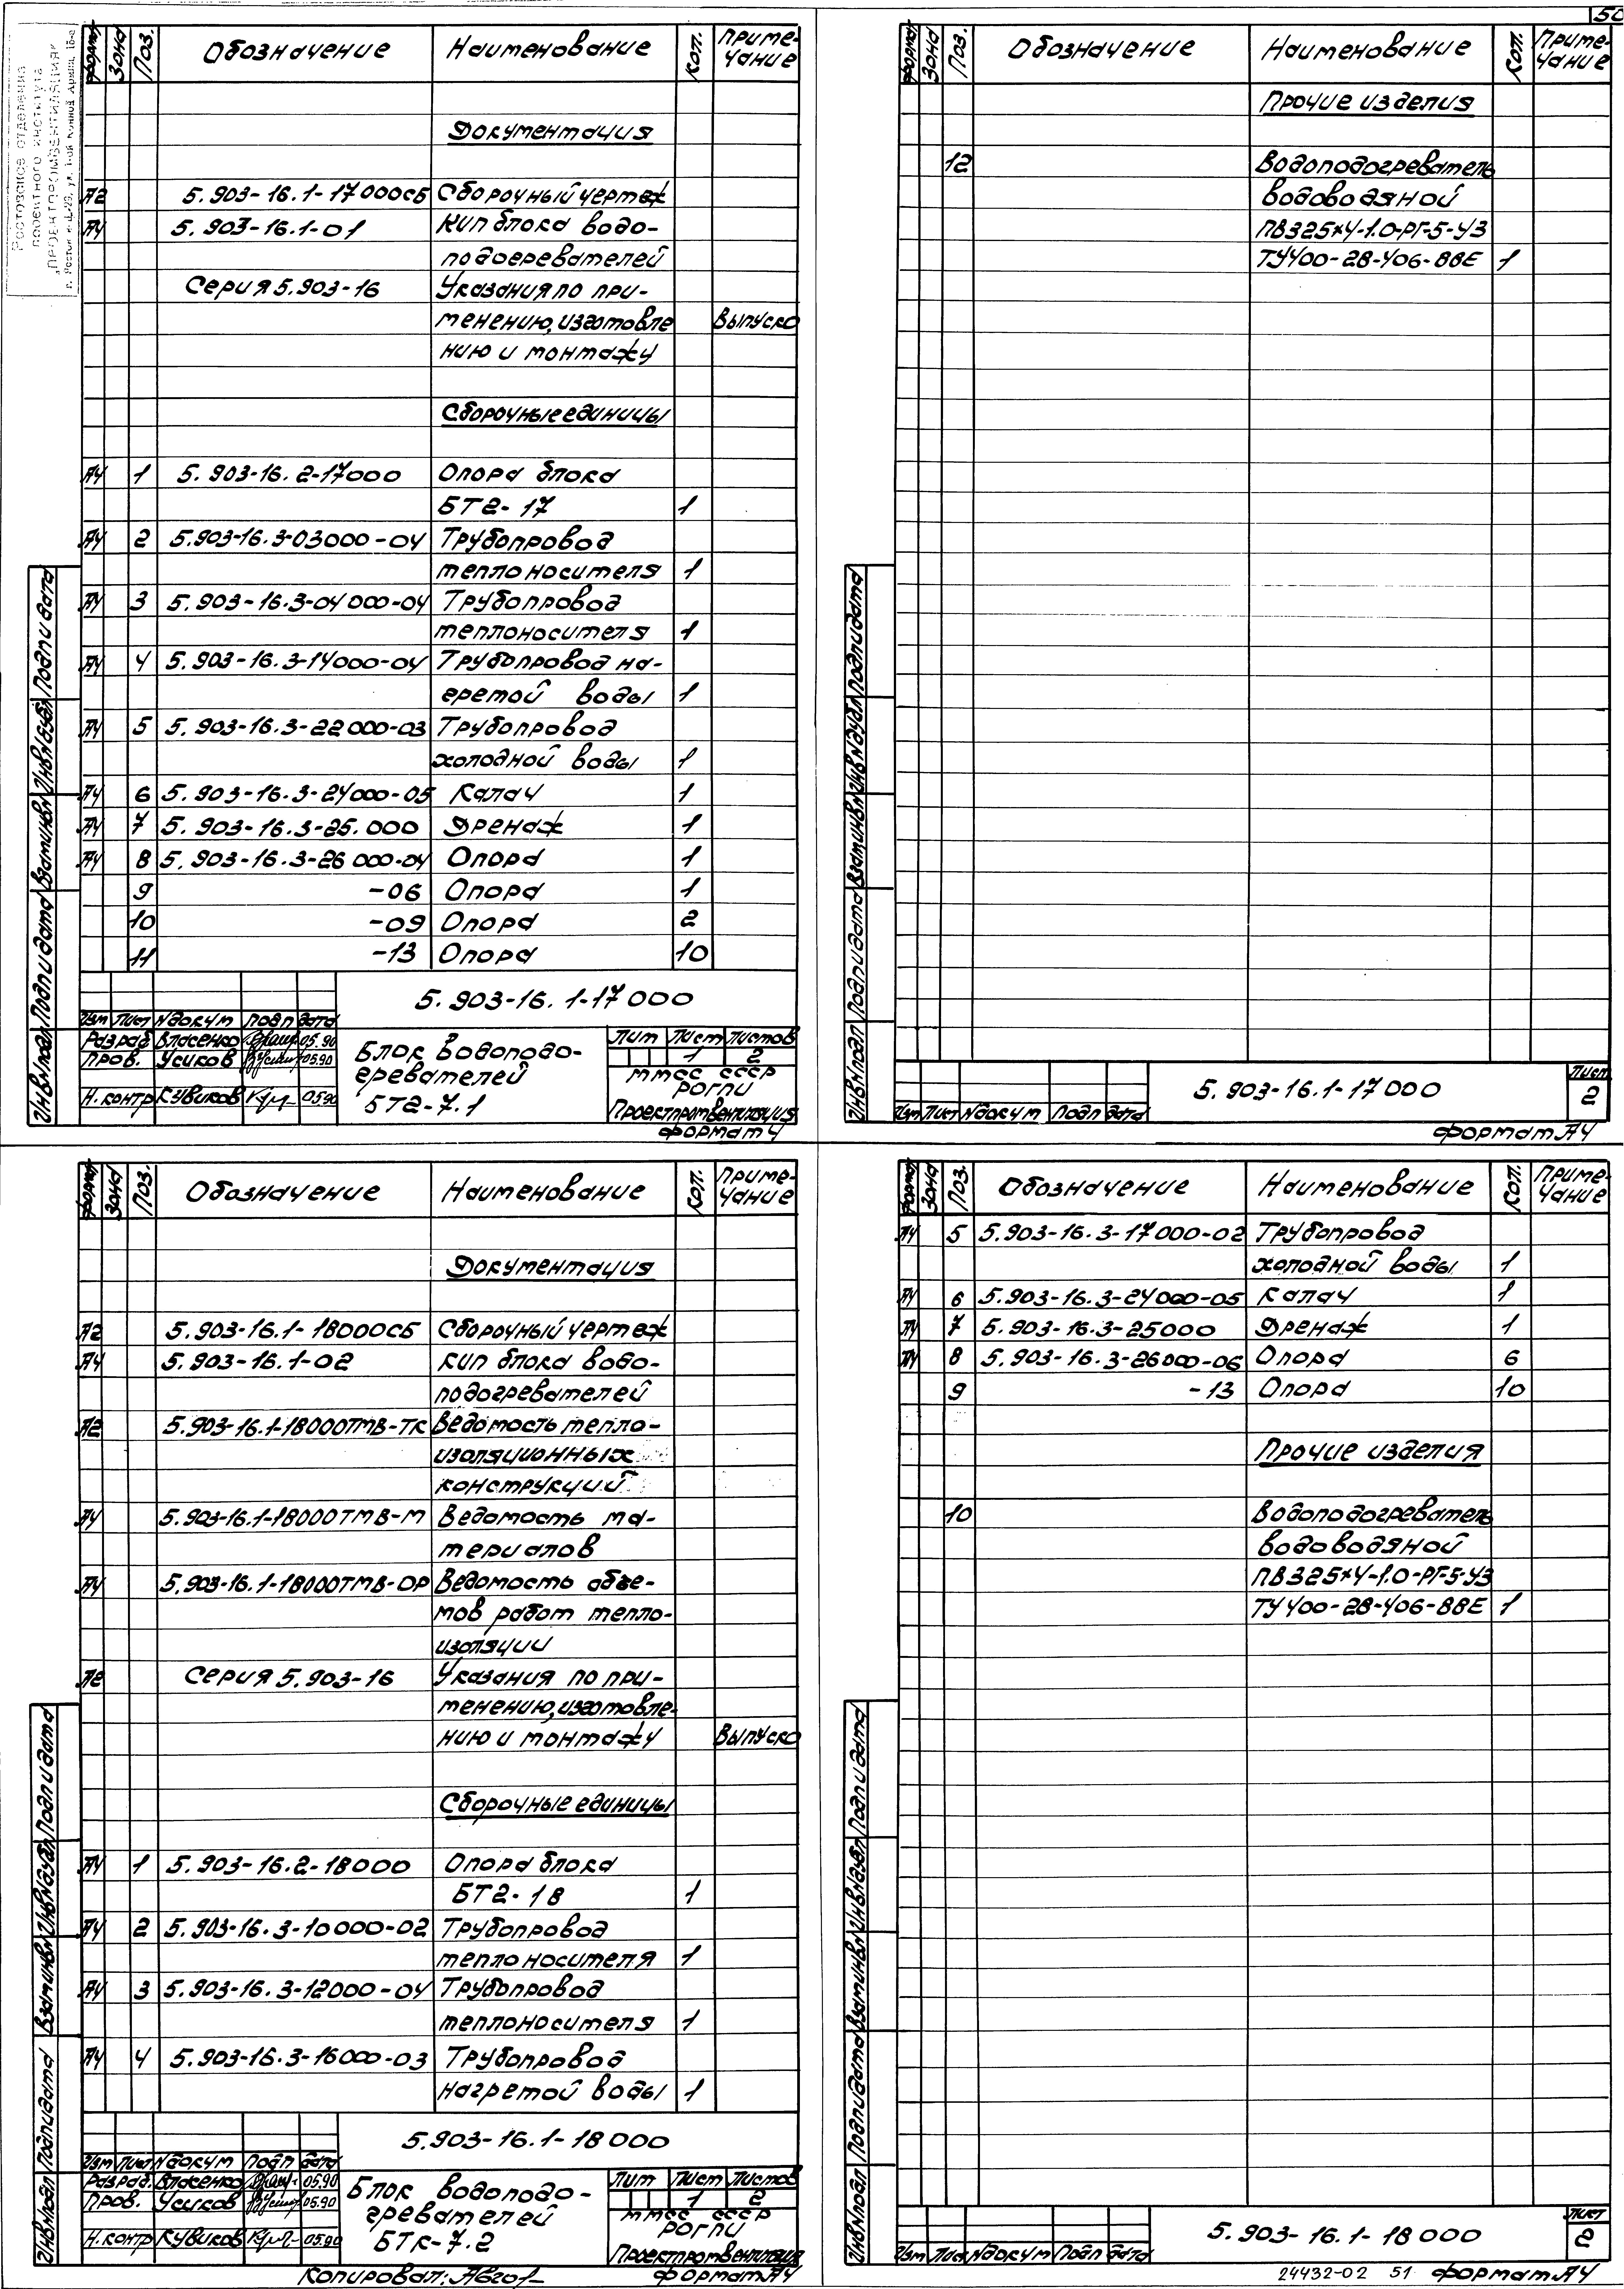 50
Ростовское отделение
проектного института
„ПРОЕКТПРОМВЕНТИЛЯЦИЯ"
Формат Зона Поз. Обозначение Наименование Кол. Приме-
чание
Документация
А2 5.903-16.1-17000СБ Сборочный чертеж
А4 5.903-16.1-01 КИП блока водо-
подогревателей
Серия 5.903-16 Указания по при-
менению, изготовле Выпуск 0
нию и монтажу
Сборочные единицы
А4 1 5.903-16.2-17000 Опора блока
БТ2-17 1
А4 2 5.903-16.3-03000-04 Трубопровод
теплоносителя 1
А4 3 5.903-16.3-04000-04 Трубопровод
теплоносителя 1
А4 4 5.903-16.3-14000-04 Трубопровод на-
гретой воды 1
А4 5 5.903-16.3-22000-03 Трубопровод
холодной воды 1
А4 6 5.903-16.3-24000-05 Калач 1
А4 7 5.903-16.3-25.000 Дренаж 1
А4 8 5.903-16.3-26000-04 Опора 1
9 -06 Опора 1
10 -09 Опора 2
11 -13 Опора 10
5.903-16.1-17000
Изм Лист №докум Подп Дата
Разраб Власенко 05.90
Пров. Усиков 05.90
Н.контр Кувиков 05.90
Блок водоподо-
гревателей
БТ2-7.1
Лит Лист Листов
1 2
ММСС СССР
РОГПИ
Проектпромвентиляция
Формат 4
Инв№подл Подп и дата Взам инв№ Инв№дубл Подп и дата
Формат Зона Поз. Обозначение Наименование Кол. Приме-
чание
Прочие изделия
12 Водоподогреватель
водоводяной
ПВ325х4-1.0-РГ-5-У3
ТУ400-28-406-88Е 1
Инв№подл Подп и дата Взам инв№ Инв№дубл Подп и дата
Изм Лист №докум Подп Дата
5.903-16.1-17000
Лист
2
Формат А4
Формат Зона Поз. Обозначение Наименование Кол. Приме-
чание
Документация
А2 5.903-16.1-18000СБ Сборочный чертеж
А4 5.903-16.1-02 КИП блока водо-
подогревателей
А2 5.903-16.1-18000ТМВ-ТК Ведомость тепло-
изоляционных
конструкций
А4 5.903-16.1-18000ТМВ-М Ведомость ма-
териалов
А4 5.903-16.1-18000ТМВ-ОР Ведомость объе-
мов работ тепло-
изоляции
Серия 5.903-16 Указания по при-
менению, изготовле-
нию и монтажу Выпуск 0
Сборочные единицы
А4 1 5.903-16.2-18000 Опора блока
БТ2-18 1
А4 2 5.903-16.3-10000-02 Трубопровод
теплоносителя 1
А4 3 5.903-16.3-12000-04 Трубопровод
теплоносителя 1
А4 4 5.903-16.3-16000-03 Трубопровод
нагретой воды 1
5.903-16.1-18000
Изм Лист №докум Подп Дата
Разраб. Власенко 05.90
Пров. Усиков 05.90
Н.контр Кувиков 05.90
Блок водоподо-
гревателей
БТК-7.2
Лит Лист Листов
1 2
ММСС СССР
РОГПИ
Проектпромвентиляция
Копировал: Формат А4
Инв№подл Подп и дата Взам инв№ Инв№дубл Подп и дата
Формат Зона Поз. Обозначение Наименование Кол. Приме-
чание
А4 5 5.903-16.3-17000-02 Трубопровод
холодной воды 1
А4 6 5.903-16.3-24000-05 Калач 1
А4 7 5.903-16.3-25000 Дренаж 1
А4 8 5.903-16.3-26000-06 Опора 6
9 -13 Опора 10
Прочие изделия
10 Водоподогреватель
водоводяной
ПВ325х4-1.0-РГ-5-У3
ТУ400-28-406-88Е 1
Инв№подл Подп и дата Взам инв№ Инв№дубл Подп и дата
Изм Лист №докум Подп Дата
5.903-16.1-18000
Лист
2
24432-02 51 Формат А4